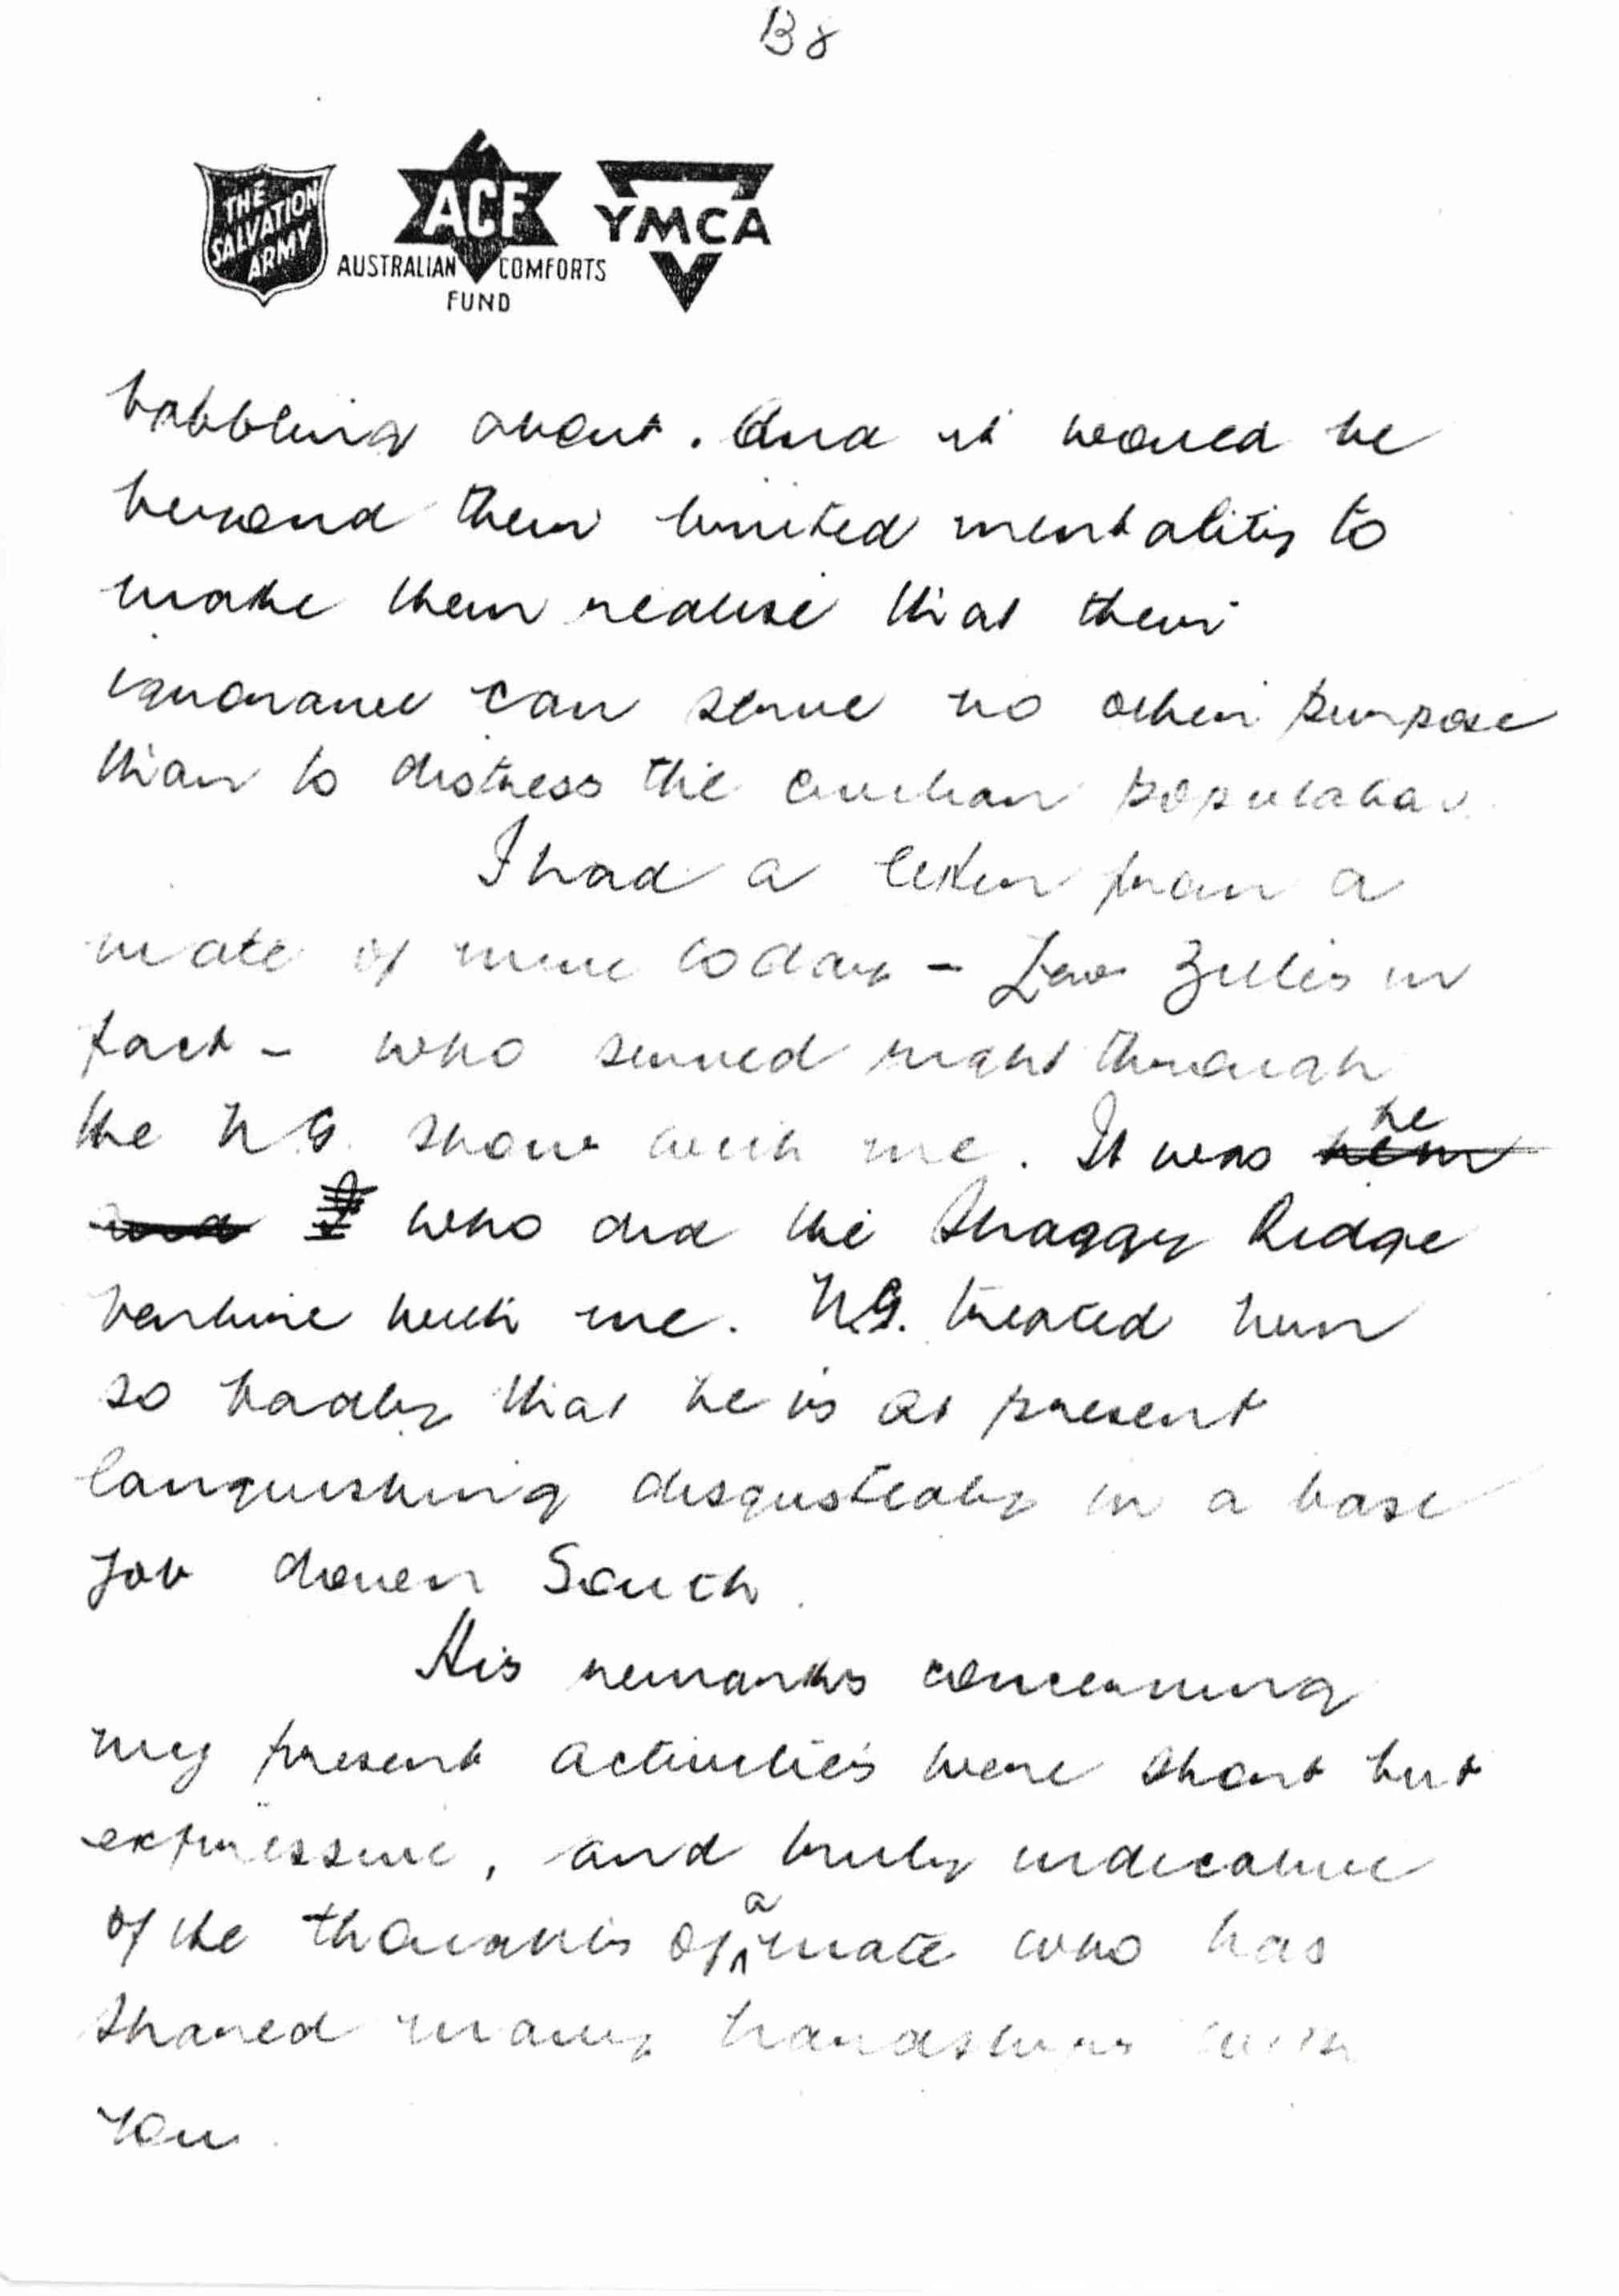 B8
THE SALVATION ARMY
ACF
AUSTRALIAN COMFORTS FUND
YMCA
babbling about. And it would be
beyond their limited mentalitis to
make them realise that their
ignorance can serve no other purpose
than to distress the civilian population.
I had a letter from a
mate of mine today - in
fact - who served right through
the N.G. show with me. It was he
who did the Shaggy Ridge
with me. N.G. treated him
so badly that he is at present
languishing disgustedly in a base
job down South.
His remarks concerning
my present activities were short but
expressive, and truly indicative
of the thoughts of a mate who has
shared many hardships with
you.